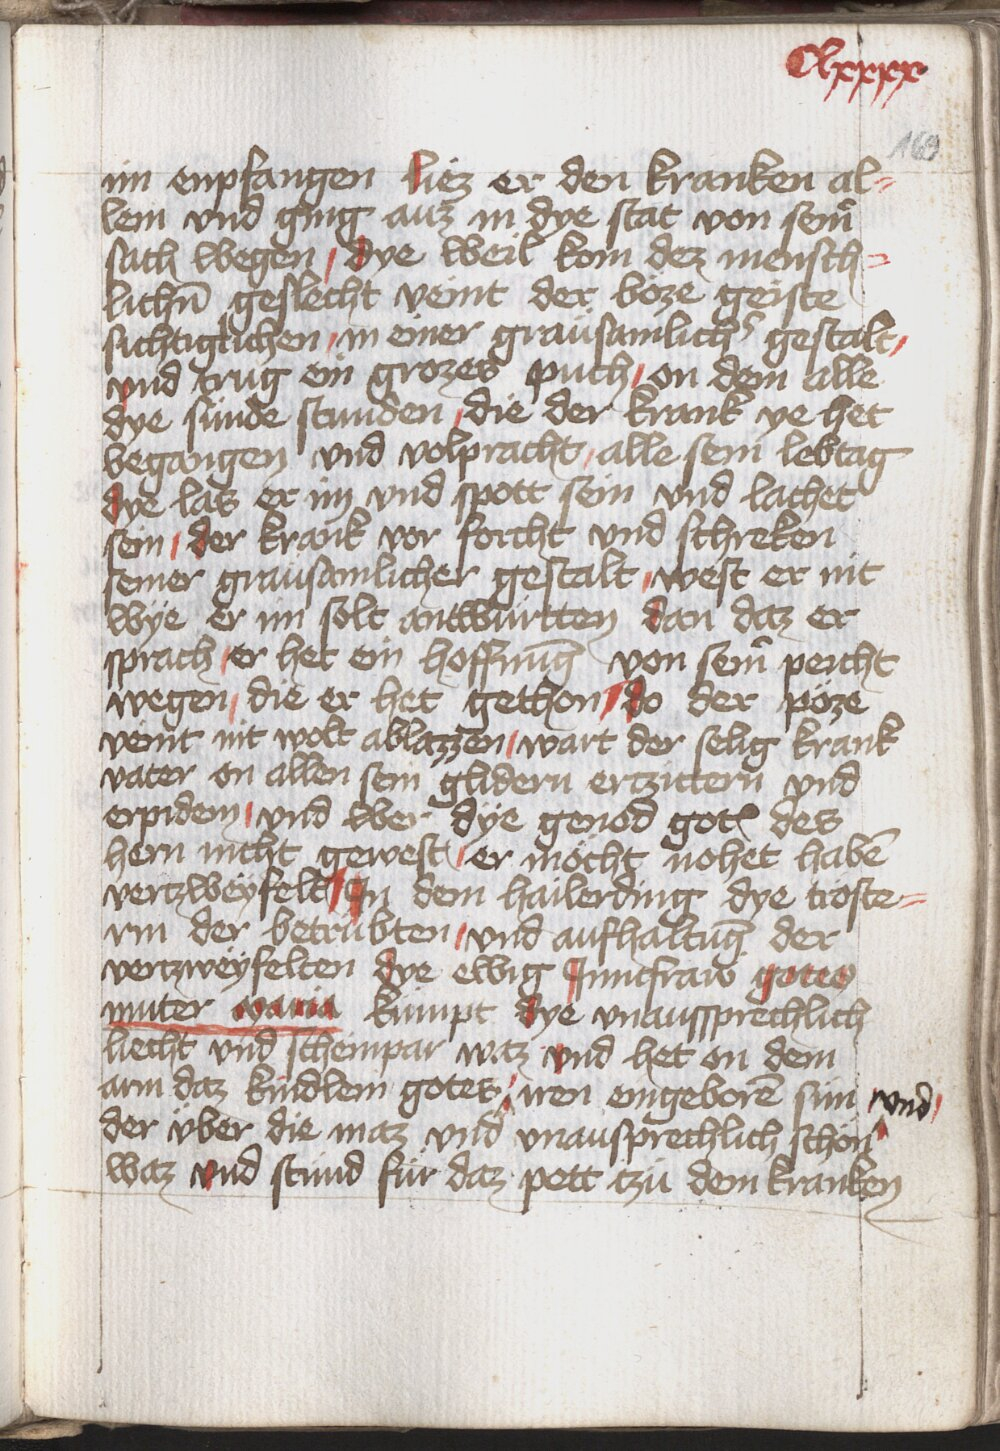 Clxxxx
169
im enpfangen liez er den kranken al-
lein vnd ging auz in dye stat von seim̄
sach wegen / dye weil kom dez mensch-
lichn̄ geslecht veint der böze geiste
sichtiglichen / in einer graüsamlich's gestalt /
vnd trug ein grozes puch / on dem alle
dye sünde stunden / die der krank ye het
begangen vnd volpracht / alle sein lebtag
dye las er im vnd spott sein vnd lachet
sein / der krank vor forcht vnd schreken
seiner grausamlicher gestalt / west er nit
wye er im solt antwürtten dan daz er
sprach / er het ein hoffnūg von seim̄ peicht
wegen / die er het gethon / do der pöze
veint nit wolt ablazzen / wart der selig krank
vater on allen sein glidern ertzittern vnd
erpidem / vnd wer dye genod gotz des
hern nicht gewest / er möcht nohet habē
vertzweyfelt / In dem hailerding dye tröste-
rin der betrübten / vnd aufhaltūg der
vertzweyfelten dye ewig Junckfraw gotes
muter maria kumpt dye vnaussprechlich
liecht vnd scheinpar waz vnd het on dem
arm daz kindlein gotes / iren eingeborē sun vnd /
der über die maz vnd vnausprechlich schön
waz vnd stund für daz pett tzü dem kranken